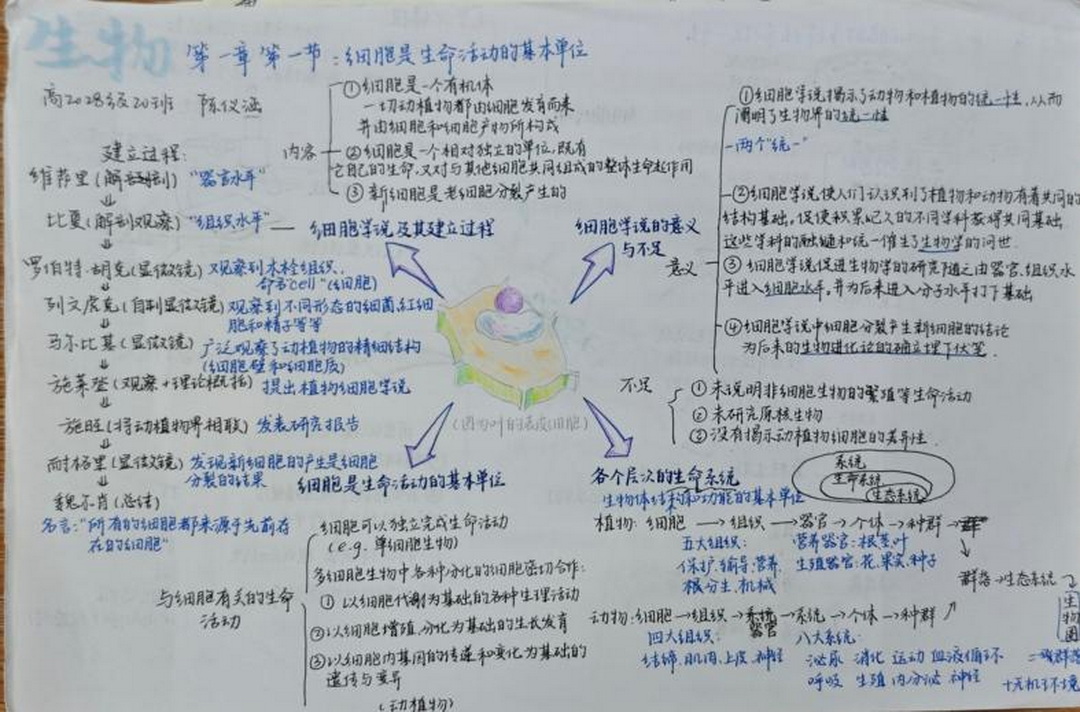 生物 第一章第一节:细胞是生命活动的基本单位
高2028级20班 陈仪涵
建立过程:
维萨里(解剖) "器官水平"
比夏(解剖观察) "组织水平"
罗伯特·胡克(显微镜) 观察到木栓组织,
命名"cell"(细胞)
列文虎克(自制显微镜) 观察到不同形态的细菌、红细
胞和精子等等
马尔比基(显微镜) 广泛观察了动植物的精细结构
(细胞壁和细胞质)
施莱登(观察+理论概括) 提出植物细胞学说
施旺(将动植物界相联) 发表研究报告
耐格里(显微镜) 发现新细胞的产生是细胞
分裂的结果
魏尔肖(总结)
名言:"所有的细胞都来源于先前存
在的细胞"
细胞学说及其建立过程
内容
①细胞是一个有机体
一切动植物都由细胞发育而来
并由细胞和细胞产物所构成
②细胞是一个相对独立的单位,既有
它自己的生命,又对与其他细胞共同组成的整体生命起作用
③新细胞是老细胞分裂产生的
细胞学说的意义
与不足
意义
①细胞学说揭示了动物和植物的统一性,从而
阐明了生物界的统一性
两个"统一"
②细胞学说使人们认识到了植物和动物有着共同的
结构基础,促使积累已久的不同学科获得共同基础,
这些学科的融通和统一催生了生物学的问世.
③细胞学说促进生物学的研究随之由器官、组织水
平进入细胞水平,并为后来进入分子水平打下基础
④细胞学说中细胞分裂产生新细胞的结论
为后来的生物进化论的确立埋下伏笔.
不足
①未说明非细胞生物的繁殖等生命活动
②未研究原核生物
③没有揭示动植物细胞的差异性.
的表皮细胞)
细胞是生命活动的基本单位
与细胞有关的生命
活动
细胞可以独立完成生命活动
(e.g. 单细胞生物)
多细胞生物中各种分化的细胞密切合作:
①以细胞代谢为基础的各种生理活动
②以细胞增殖、分化为基础的生长发育
③以细胞内基因的传递和变化为基础的
遗传与变异
(动植物)
各个层次的生命系统
生物体结构和功能的基本单位
系统
生命系统
生态系统
植物:细胞→组织→器官→个体→种群→
五大组织: 营养器官:根茎叶
保护、输导、营养、 生殖器官:花、果实、种子
根分生、机械
群落→生态系统→
生物圈
动物:细胞→组织→器官→系统→个体→种群
四大组织: 八大系统:
结缔、肌肉、上皮、神经 泌尿 消化 运动 血液循环
呼吸 生殖 内分泌 神经
+无机环境